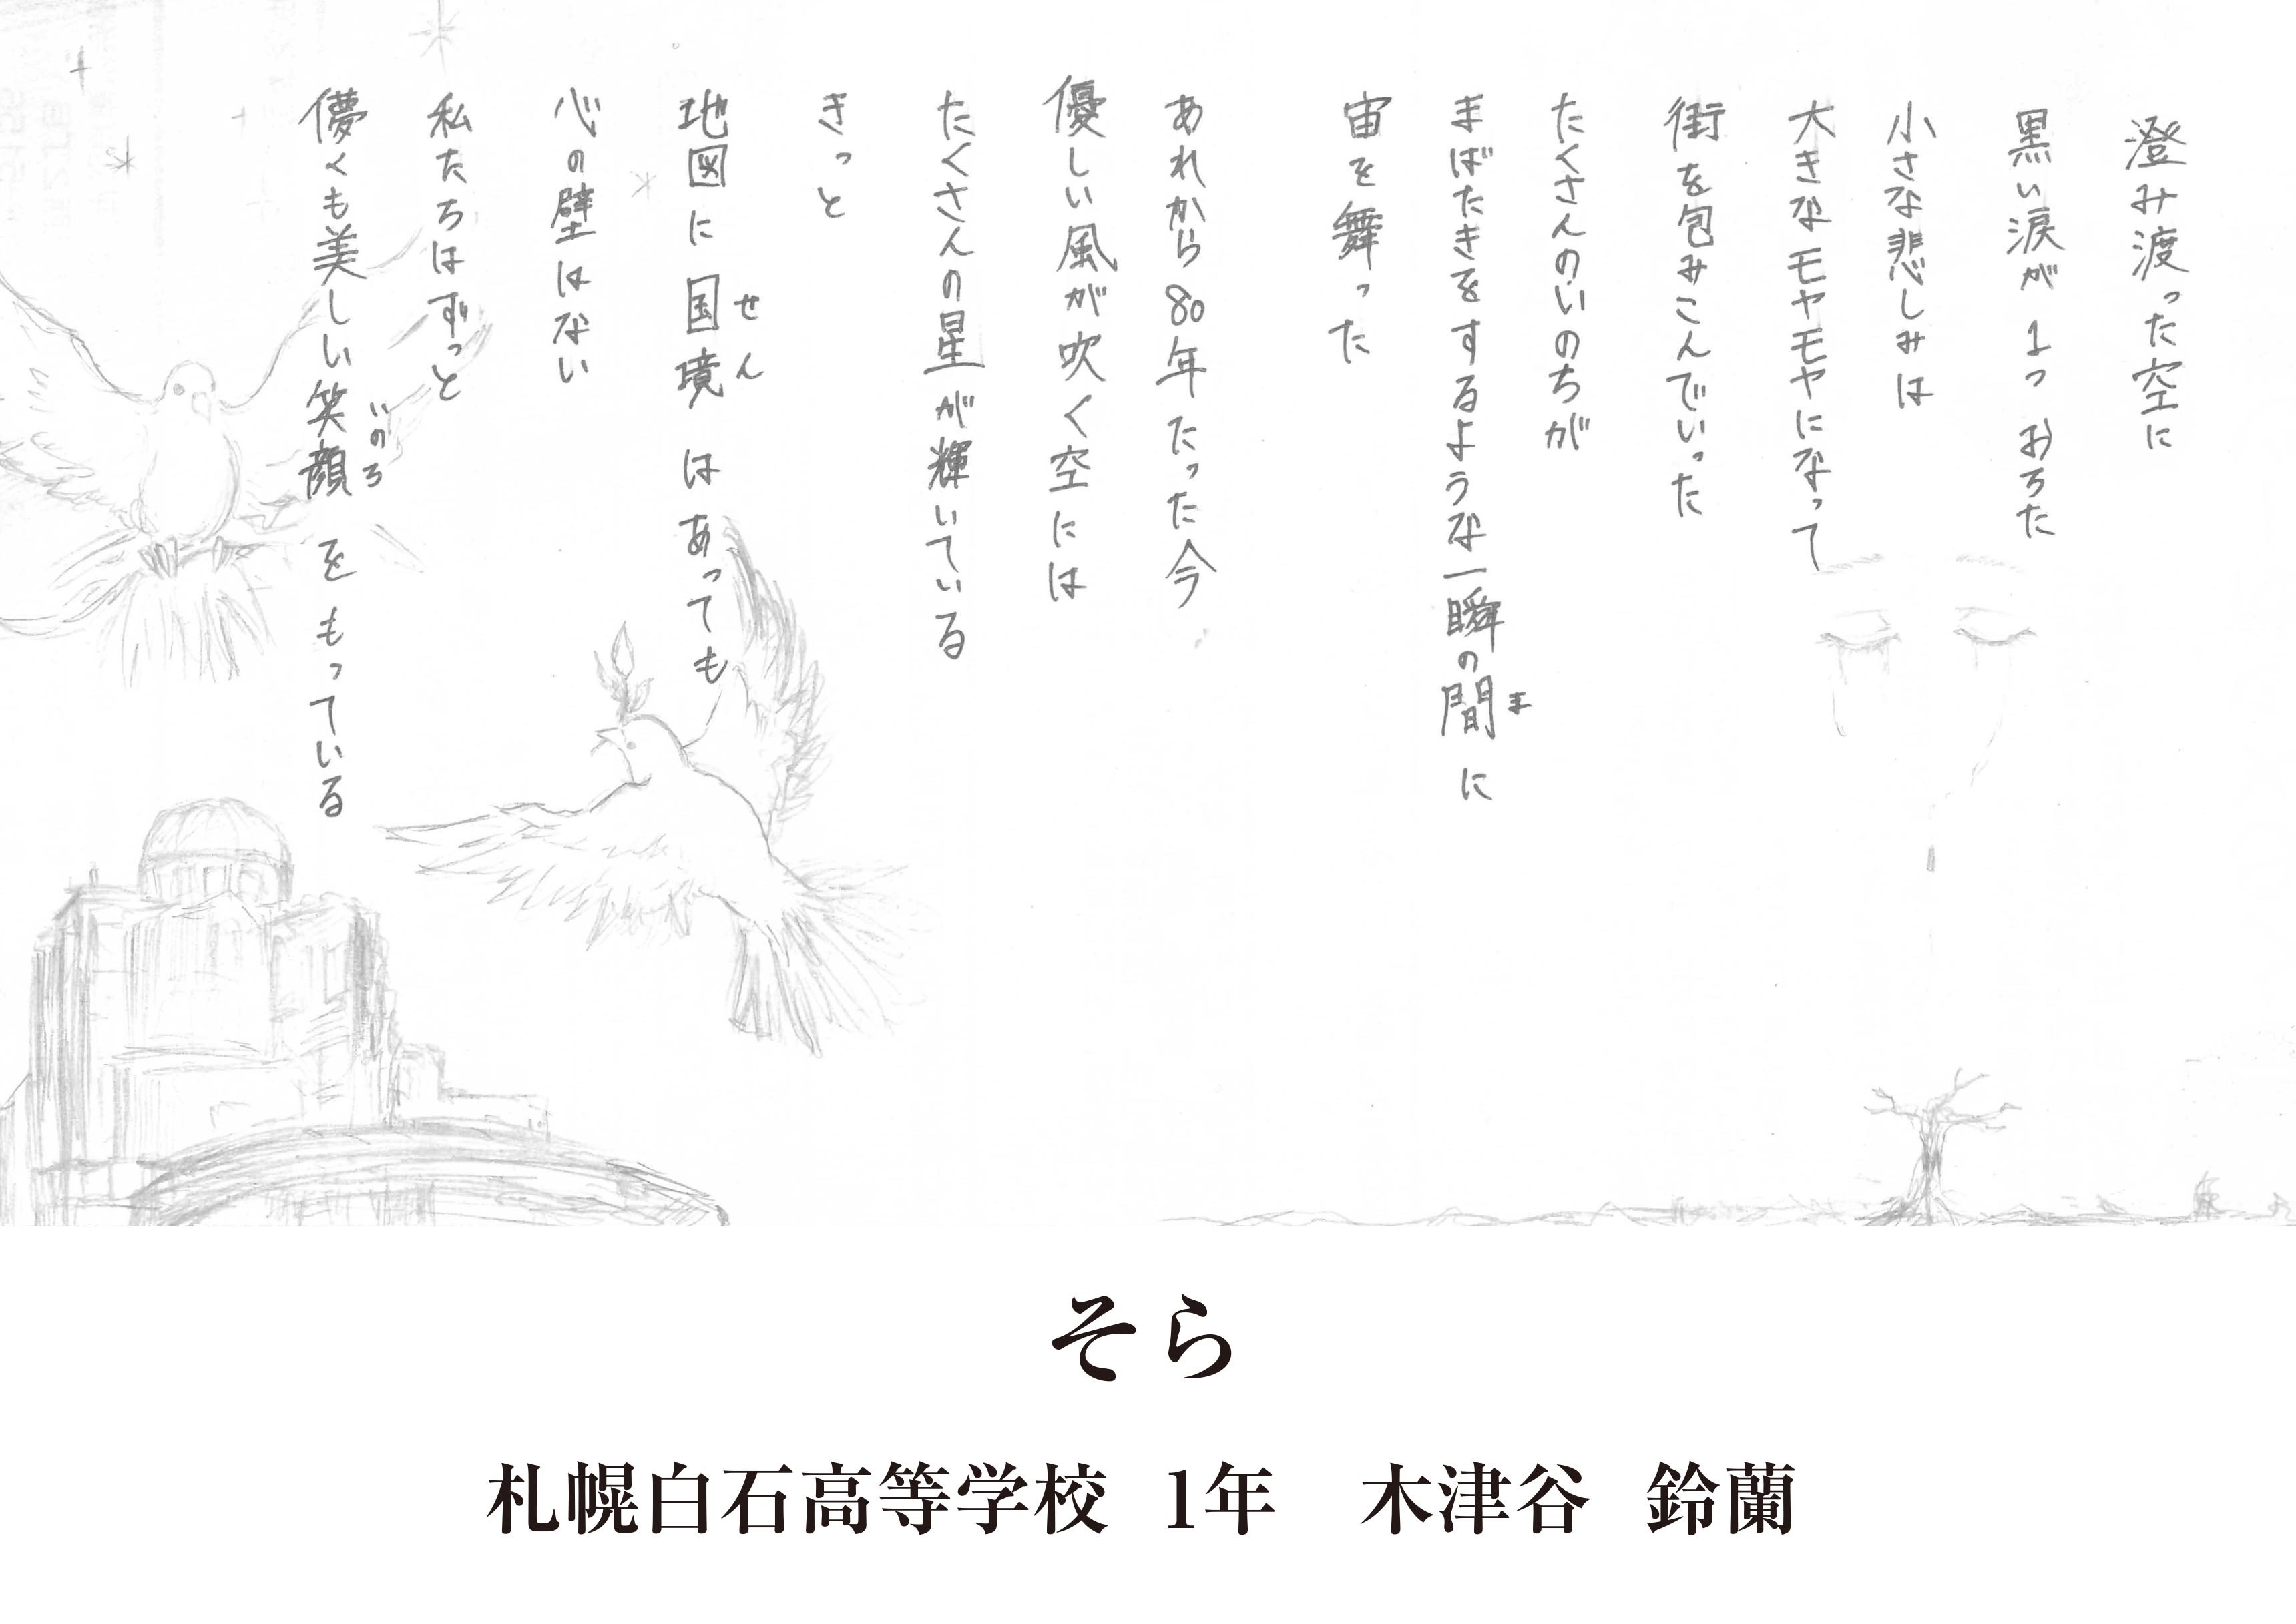 澄み渡った空に
黒い涙が1つおちた
小さな悲しみは
大きなモヤモヤになって
街を包みこんでいった
たくさんのいのちが
まばたきをするような一瞬の間に
ま
宙を舞った
あれから80年たった今
優しい風が吹く空には
たくさんの星が輝いている
きっと
地図に国境はあっても
せん
心の壁はない
私たちはずっと
儚くも美しい笑顔をもっている
いのち
そら
札幌白石高等学校 1年 木津谷 鈴蘭